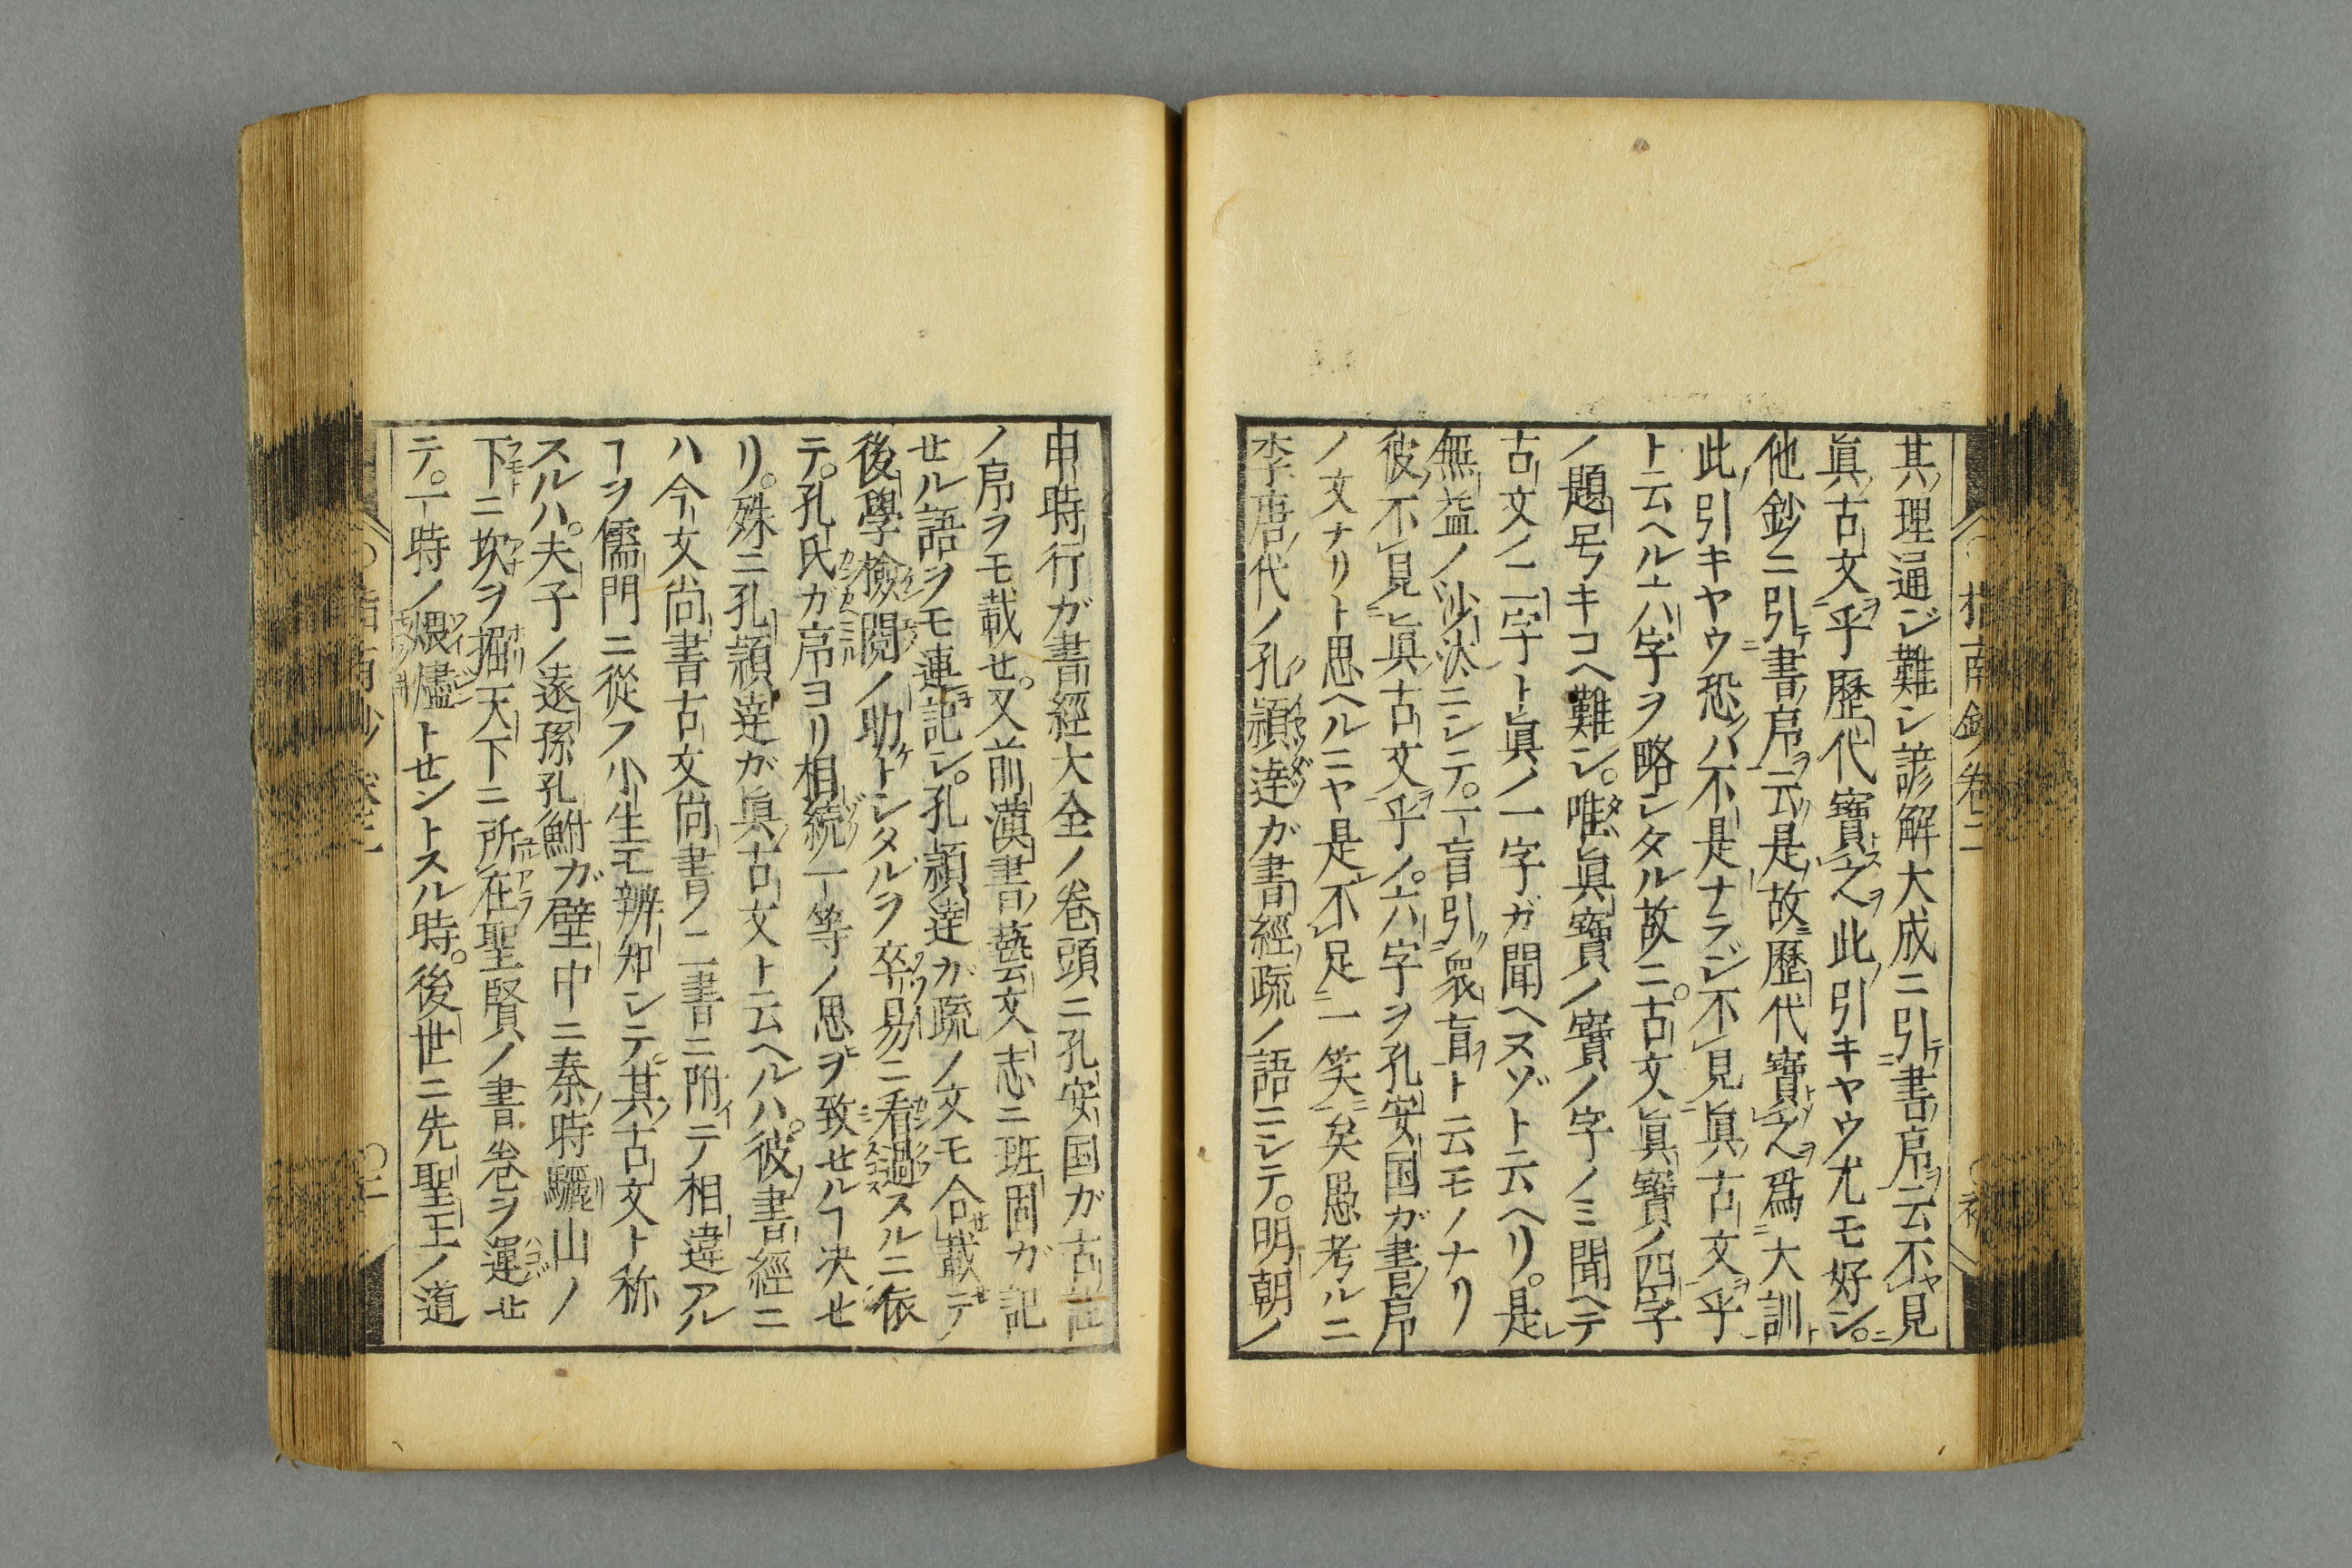 其理通ジ難シ諺解大成ニ引テ書序ヲ云不ヤ見
眞古文ヲ乎歷代寶トス之ヲ此引キヤウ尤モ好シ。
他鈔ニ引テ書序ヲ云是ノ故ニ歷代寶トメ之ヲ爲大訓ト
此引キヤウ恐ハ不是ナラジ不見眞古文ヲ乎
ト云ヘル六字ヲ略シタル故ニ。古文眞寶ノ四字
ノ題号フキコヘ難シ。唯眞寶ノ寶ノ字ノミ聞ヘテ
古文ノ二字ト眞ノ一字ガ聞ヘヌゾト云ヘリ。是レ
無益ノ沙汰ニシテ。一盲引衆盲ヲト云モノナリ
彼不見眞古文ヲ乎ノ。六字ヲ孔安国ガ書序
ノ文ナリト思ヘルニヤ是不足一笑ニ矣愚考ルニ
李唐ノ代ノ孔穎達ガ書經疏ノ語ニシテ。明朝ノ
申時行ガ書經大全ノ卷頭ニ孔安国ガ古
ノ序ヲモ載セ。又前漢書藝文志ニ班固ガ記
セル語ヲモ連記シ。孔穎達ガ疏ノ文モ合セ載テ
後學檢閱ノ助ケトシタルヲ卒易ニ看過スルニ依
テ。孔氏ガ序ヨリ相続ヿ等ノ思ヲ致セルヿ决セ
リ。殊ニ孔穎達ガ眞古文ト云ヘルハ。彼書經ニ
ハ今文尚書古文尚書ノ二書ニ附イテ相違アル
ヿヲ儒門ニ從フ小生モ辨知シテ其古文ト称
スルハ。夫子ノ遠孫孔鮒ガ壁中ニ秦ノ時驪山ノ
下ニ坎ヲ掘天下ニ所在聖賢ノ書卷ヲ運セ
テ。一時ノ煨燼トセントスル時。後世ニ先聖王ノ道